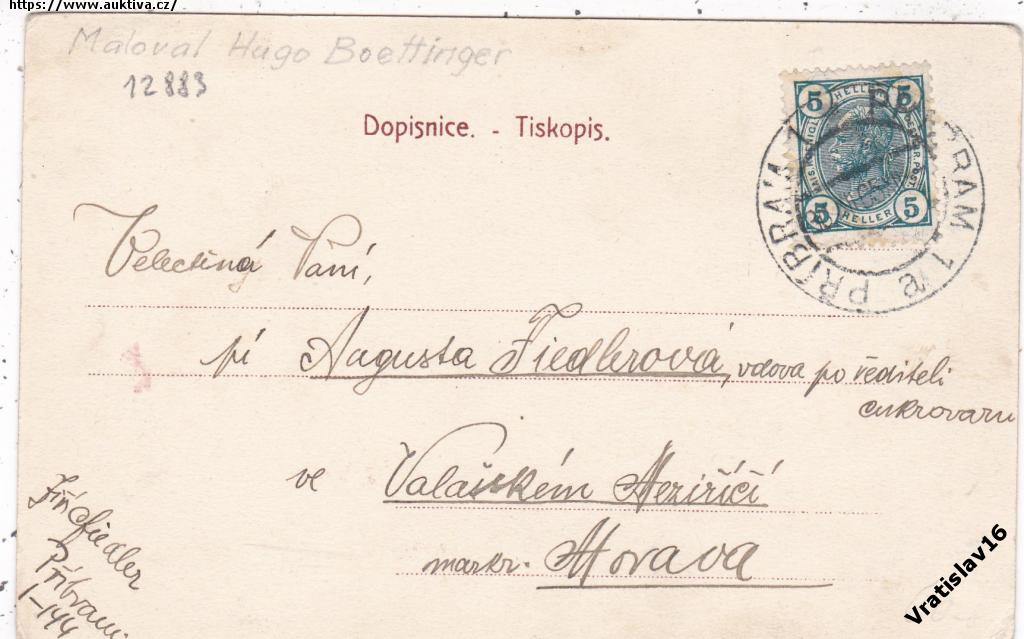 https://www.auktiva.cz/
Maloval Hugo Boettinger
12883
Dopisnice. - Tiskopis.
5 HELLER 5
5 HELLER 5
PŘÍBRAM 1 PŘÍBRAM 1
Velectěná Paní,
pí Augusta Fiedlerová, vdova po řediteli
cukrovaru
ve Valašském Meziříčí
markr. Morava
Jiří Fiedler
Příbram
I-144
Vratislav16